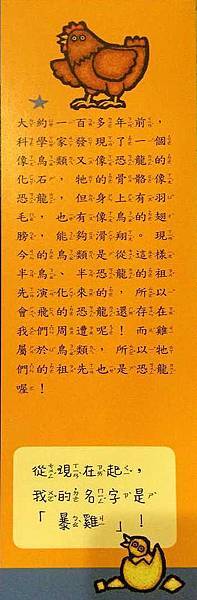 大約一百多年前，
科學家發現了一個
像鳥類又像恐龍的
化石，牠的骨骼像
恐龍，但身上有羽
毛，也有像鳥的翅
膀，能夠滑翔。現
今的鳥類是從這樣
半鳥、半恐龍的祖
先演化來的，所以
會飛的恐龍還存在
我們周遭呢！而雞
屬於鳥類，所以牠
們的祖先也是恐龍
喔！
從現在起，
我的名字是
「暴雞」！